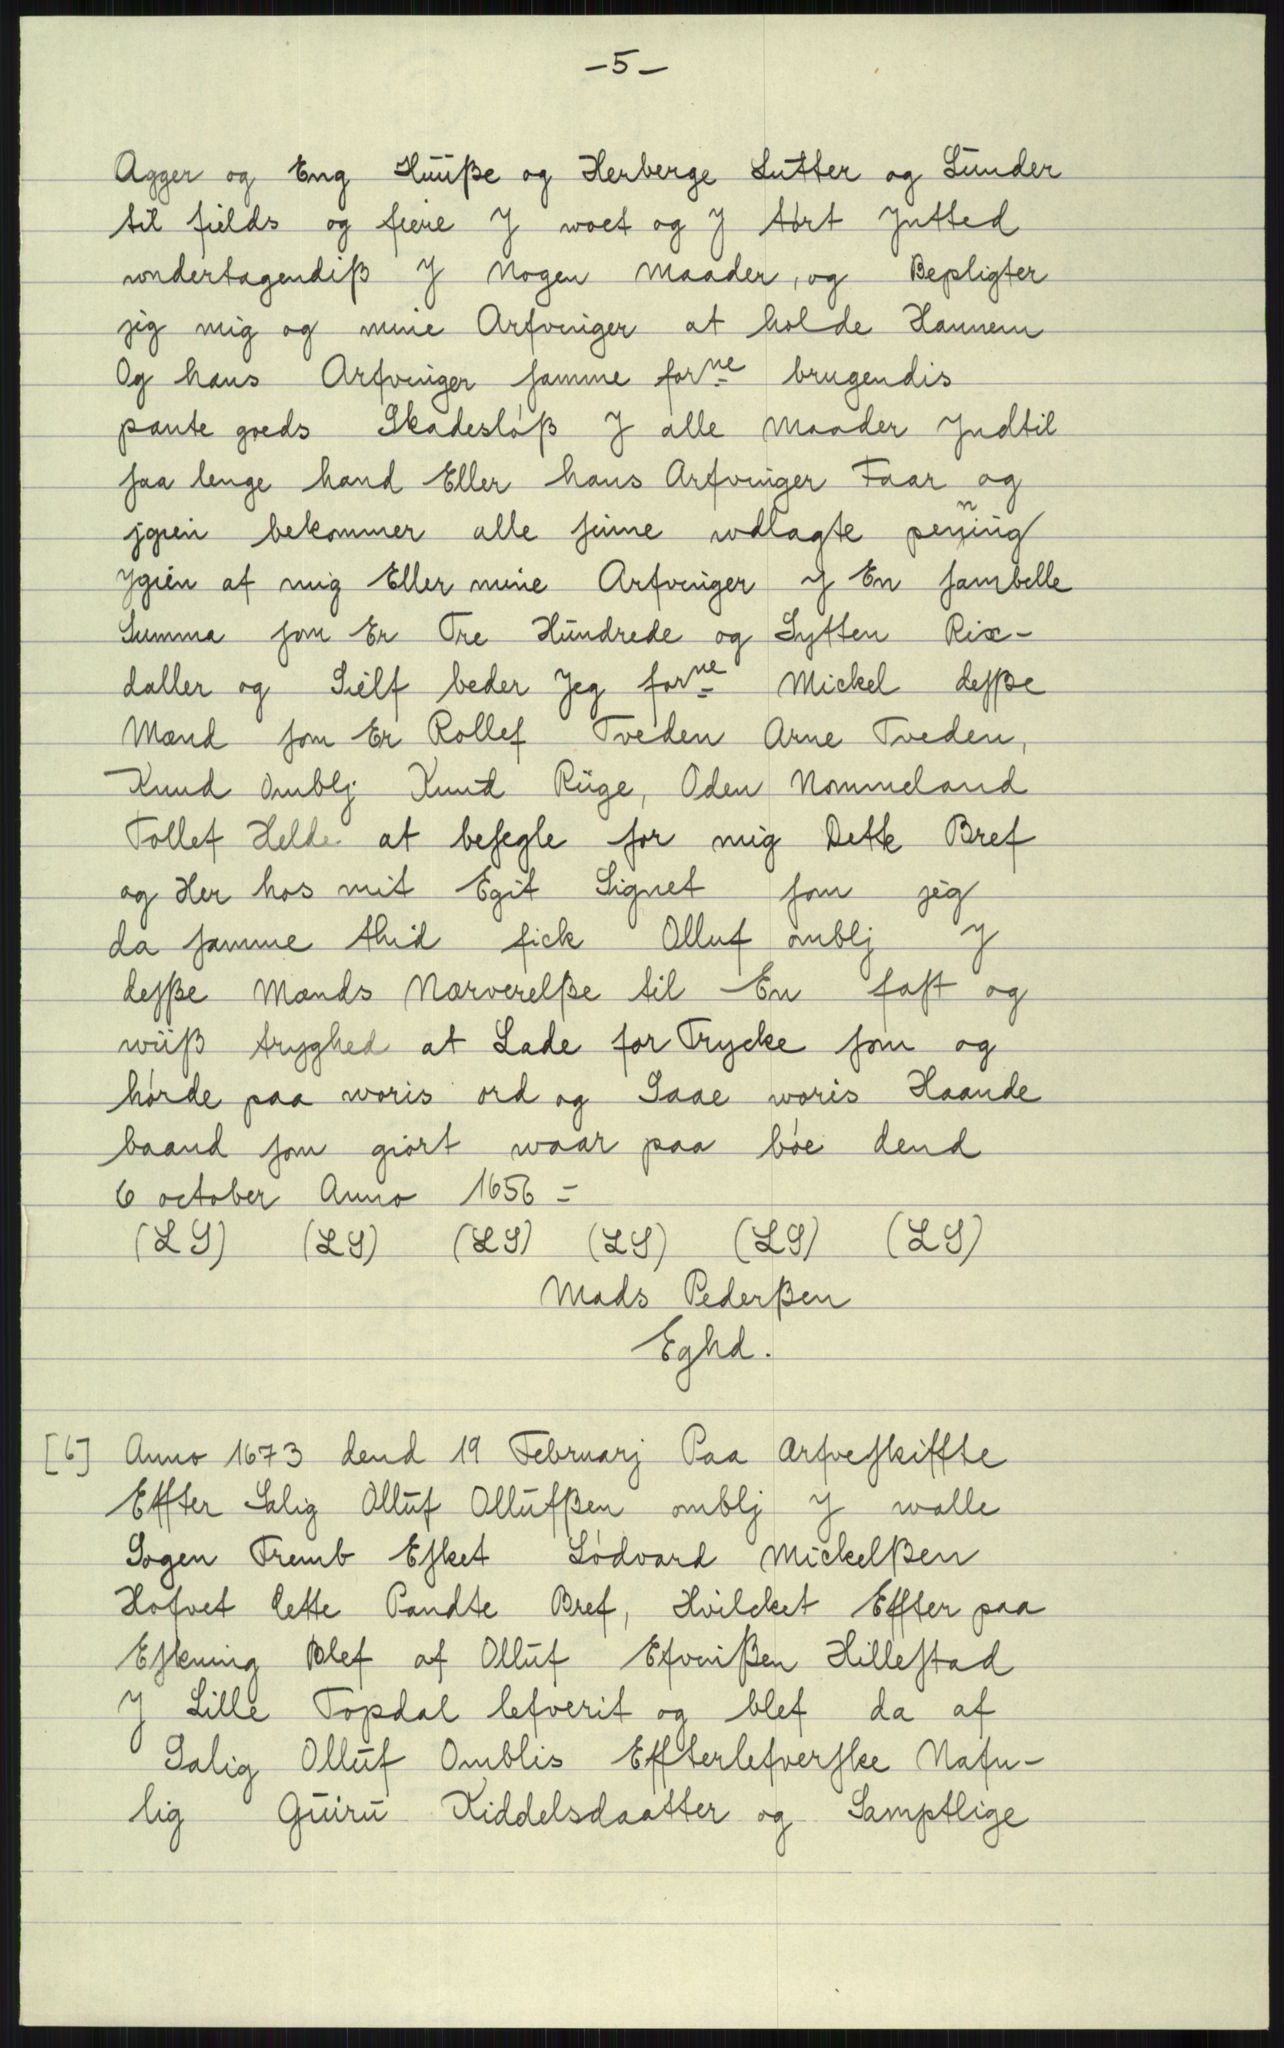 -5-
Agger og Eng Huuße og Herberge Lutter og Lunder
til fields og fiere J woet og J tørt Jntted
wndertagendiß J Nogen Maader, og Bepligter
jeg mig og mine Arfvinger at holde Hannem
Og hans Arfvinger samme forne brugendis
pante goeds Skadesløß J alle Maader Jndtil
saa lenge hand Eller hans Arfvinger Faar og
jgien bekommer alle sinne wdlagte penning
ygien af mig Eller mine Arfvinger J En sambelle
Summa som Er Tre Hundrede og Sytten Rix-
daller og Sielf beder Jeg forne Mickel desße
Mænd som Er Rollef Tveden Arne Tveden,
Knud Omblj Knud Rüge, Oden Nommeland
Tollef Helde at besegle for mig Dette Bref
og Her hos mit Egit Signet som jeg
da samme thid fick Olluf omblj J
desße Mænds Nærverelße til En fast og
wiiß tryghed at Lade for Trycke som og
hørde paa woris ord og Saae woris Haande
baand som giort waar paa bøe dend
6 october Anno 1656 =
(LS) (LS) (LS) (LS) (LS) (LS)
Mads Pederßen
Eghd.
[6] Anno 1673 dend 19 Februarj Paa Arfveskiffte
Effter Salig Olluf Ollufßen omblj J walle
Sogen Fremb Esket Lødvard Mickelßen
Hofvet dette Pandte Bref, Hvilcket Effter paa
Eskning Blef af Olluf Efvinßen Hillestad
J Lille Topdal lefverit og blef da af
Salig Olluf Omblis Effterlefverske Nafn-
lig Guiru Kiddelsdaatter og Samptlige